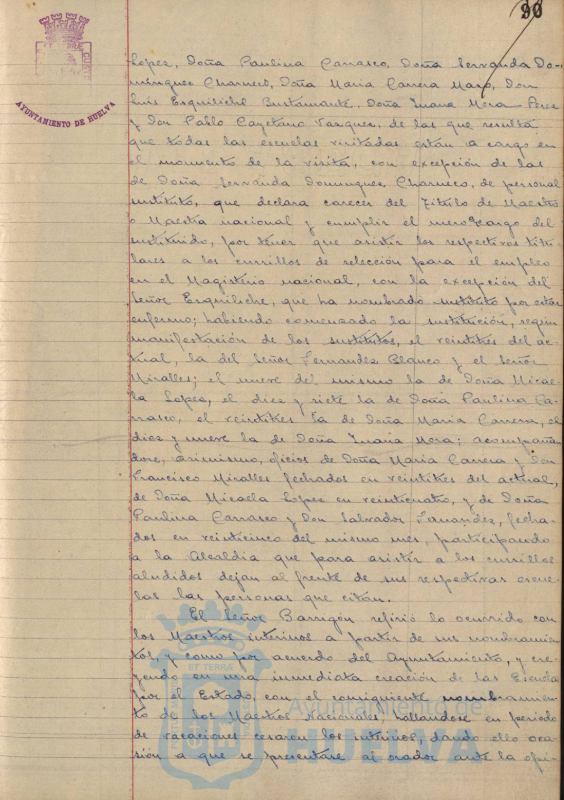 90
AYUNTAMIENTO DE HUELVA
Lopez, Doña Paulina Carrasco, Doña Servanda Do-
minguez Charneco, Doña Maria Carrera Mazo, Don
Luis Esquiliche Bustamante, Doña Juana Mora Perez
y Don Pablo Cayetano Vazquez, de las que resulta
que todas las escuelas visitadas están a cargo en
el momento de la visita, con excepción de las
de Doña Servanda Dominguez Charneco, de personal
sustituto, que declara carecer del Titulo de Maestro
o Maestra nacional y cumplir el mero cargo del
sustituido, por tener que asistir los respectivos titu-
lares a los cursillos de selección para el empleo
en el Magisterio nacional, con la excepción del
Señor Esquiliche, que ha nombrado sustituto por estar
enfermo; habiendo comenzado la sustitución, segun
manifestación de los sustitutos, el veintitres del ac-
tual, la del Señor Fernandez Blanco y el Señor
Miralles; el nueve del mismo la de Doña Micae-
la Lopez, el diez y siete la de Doña Paulina Ca-
rrasco, el veintitres la de Doña Maria Carrera, el
diez y nueve la de Doña Juana Mora; acompañan-
dose, asimismo, oficios de Doña Maria Carrera y Don
Francisco Miralles fechados en veintitres del actual,
de Doña Micaela Lopez en veinticuatro, y de Doña
Paulina Carrasco y Don Salvador Fernandez, fecha-
dos en veinticinco del mismo mes, participando
a la Alcaldia que para asistir a los cursillos
aludidos dejan al frente de sus respectivas escue-
las las personas que citan.
El Señor Barrigón refirió lo ocurrido con
los Maestros interinos a partir de sus nombramien-
tos, y como por acuerdo del Ayuntamiento, y cre-
yendo en una inmediata creación de las Escuelas
por el Estado con el consiguiente nombramien-
to de los Maestros Nacionales, hallandose en periodo
de vacaciones cesaron los interinos, dando ello oca-
sión a que se presentase al orador ante la opi-
Ayuntamiento de
HUELVA